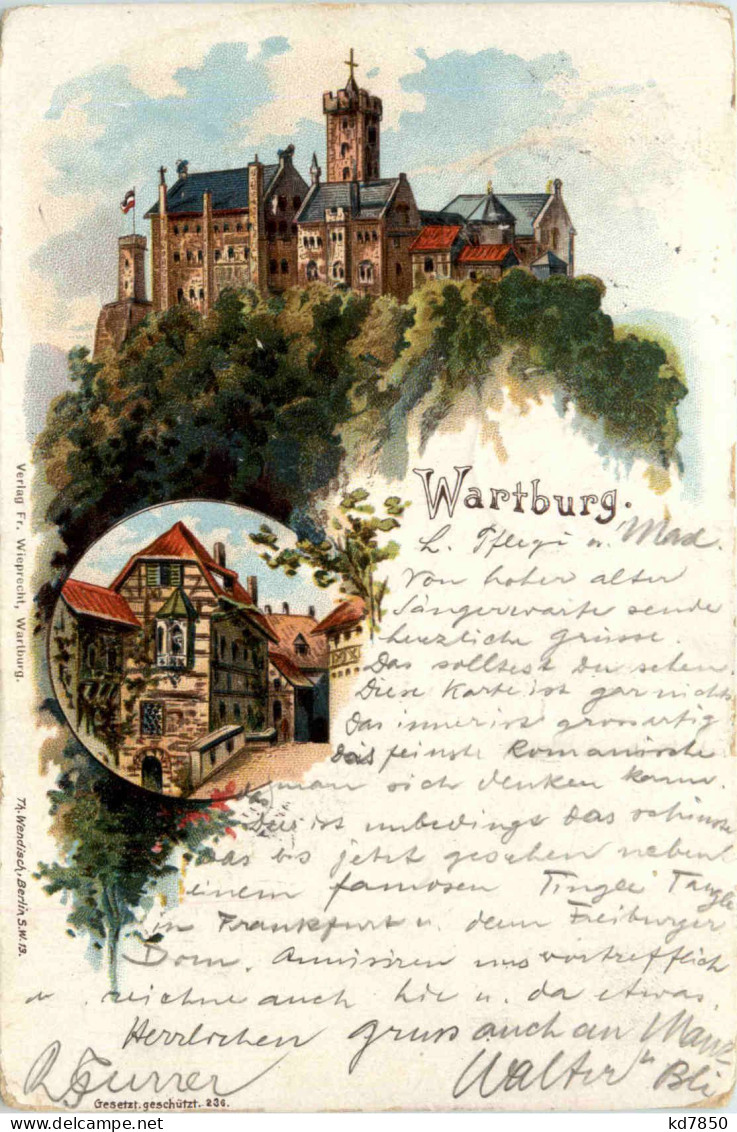 Wartburg.
L. Pflegi u. Mad.
Von hoher alter
Sängerwarte sende
herzliche Grüsse.
Das solltest Du sehen.
Diese Karte ist gar nichts
das innere ist grossartig
das feinste Romanische
man sich denken kann.
ist unbedingt das schönste
was bis jetzt gesehen neben
einem famosen Tingel Tangel
in Frankfurt u. dem Freiburger
Dom. Amüsiren uns vortrefflich
u. zeichne auch hie u. da etwas.
Herzlichen gruss auch an
Walter
R Furrer
Verlag Fr. Wieprecht, Wartburg.
Th. Wendisch, Berlin S.W. 13.
Gesetzt. geschützt. 234.
kd7850